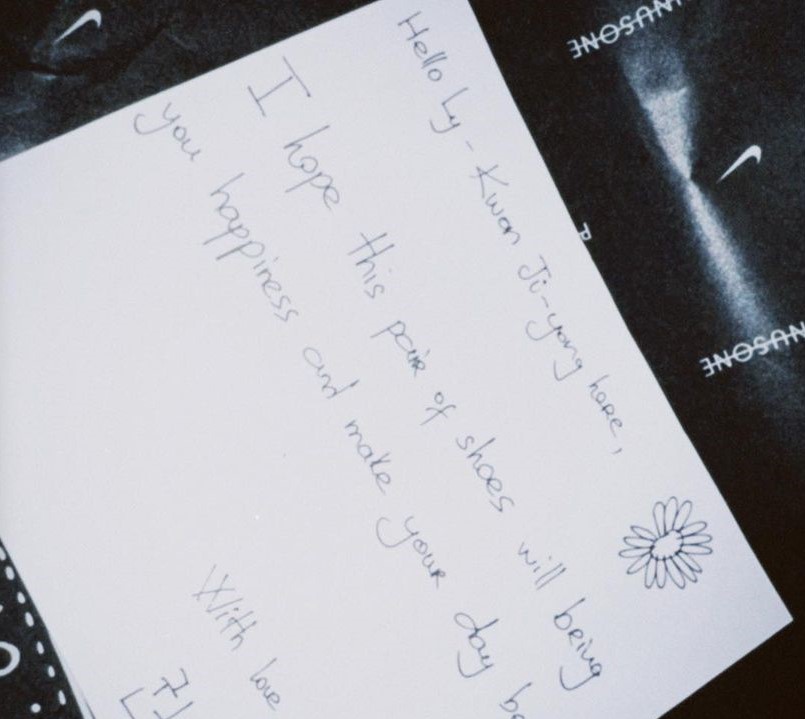 Hello Ly - Kwon Ji-yong here,
I hope this pair of shoes will bring
you happiness and make your day be
With love
INUSONE
NUSONE